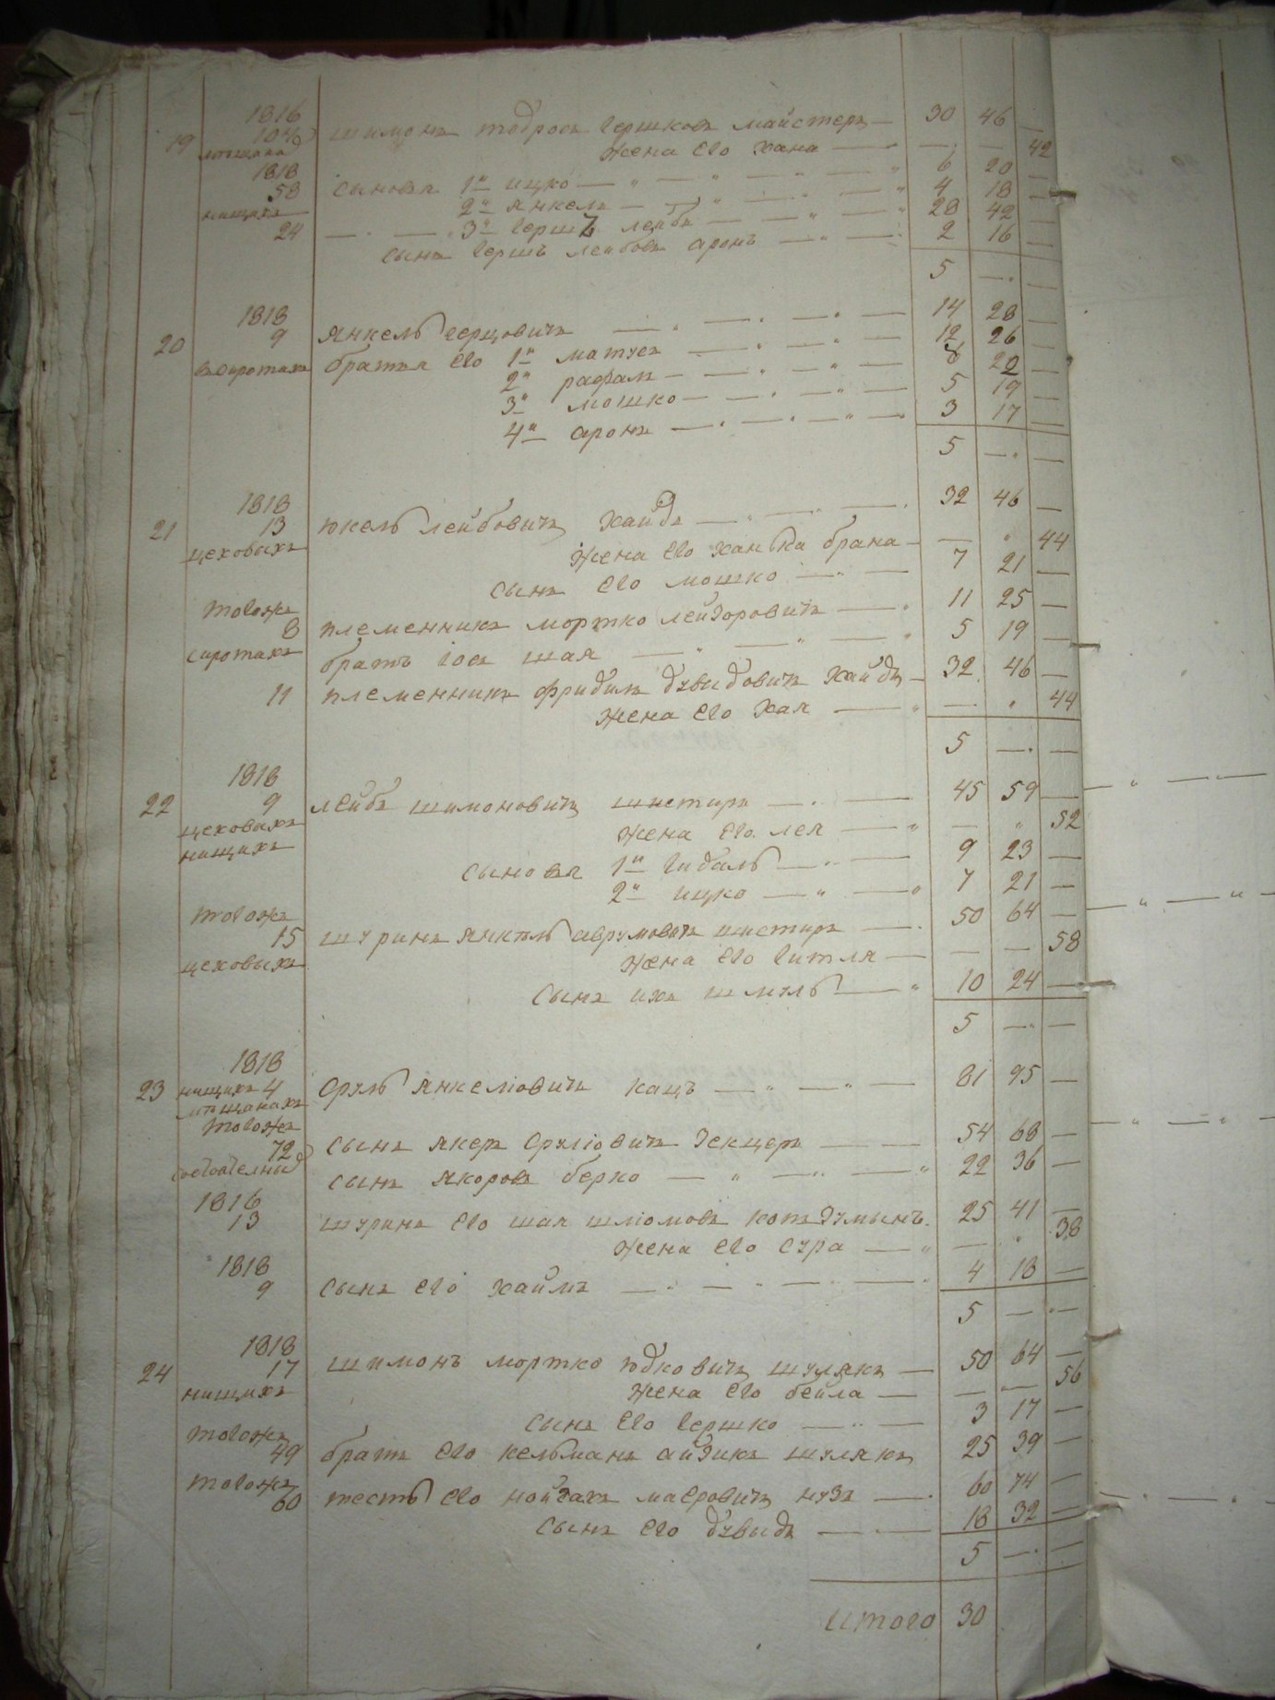 1816
19 шимонъ тодросъ гершковъ майстеръ — 30 46 —
мещана жена его хана — — — 42
1818
58 сыновья 1й ицко — 6 20 —
нищихъ 2й янкель — 4 18 —
24 3й гершъ лейба — 28 42 —
сынъ гершъ лейбовъ аронъ — 2 16 —
5 — —
1818
20 9 янкель герцовичъ — 14 28 —
въ сиротахъ братья его 1й матусъ — 12 26 —
2й рафалъ — 8 20 —
3й мошко — 5 19 —
4й аронъ — 3 17 —
5 — —
1818
21 13 юкель лейбовичъ хайдъ — 32 46 —
цеховыхъ жена его ханька брана — — „ 44
сынъ его мошко — 7 21 —
тогожъ
8 племенникъ мортко лейзоровичъ — 11 25 —
сиротахъ братъ іосъ шая — 5 19 —
11 племенникъ фридель дувидовичъ хайдъ — 32 46 —
жена его хая — — „ 44
5 — —
1818
22 9 лейба шимоновичъ шистиръ — 45 59 —
цеховыхъ жена его лея — — „ 52
нищихъ
сыновья 1й гидаль — 9 23 —
2й ицко — 7 21 —
тогожъ
15 шуринъ янкель аврумовичъ шистиръ — 50 64 —
цеховыхъ жена его гитля — — — 58
сынъ ихъ шмуль — 10 24 —
5 — —
1818
23 нищихъ 4 сруль янкеліовичъ кацъ — 81 95 —
мещанахъ
тогожъ
72 сынъ якеръ сруліовичъ зекцеръ — 54 68 —
сынъ якоровъ берко — 22 36 —
1816
13 шуринъ его шая шліомовъ — 25 41 —
жена его сура — — „ 38
1818
9 сынъ его хаймъ — 4 18 —
5 — —
1818
24 17 шимонъ мортко юдковичъ шулякъ — 50 64 —
нищихъ жена его бейла — — — 56
сынъ его гершко — 3 17 —
тогожъ
49 братъ его кельманъ айзикъ шулякъ 25 39 —
тогожъ
60 тесть его нойзахъ маеровичъ нузъ — 60 74 —
сынъ его дувыдъ — 18 32 —
5 — —
итого 30